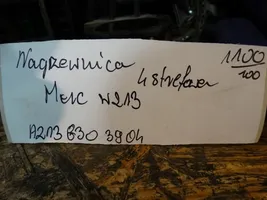 Nagrzewnica 1100
4 strefowa 100
Merc W213
A213 830 3904